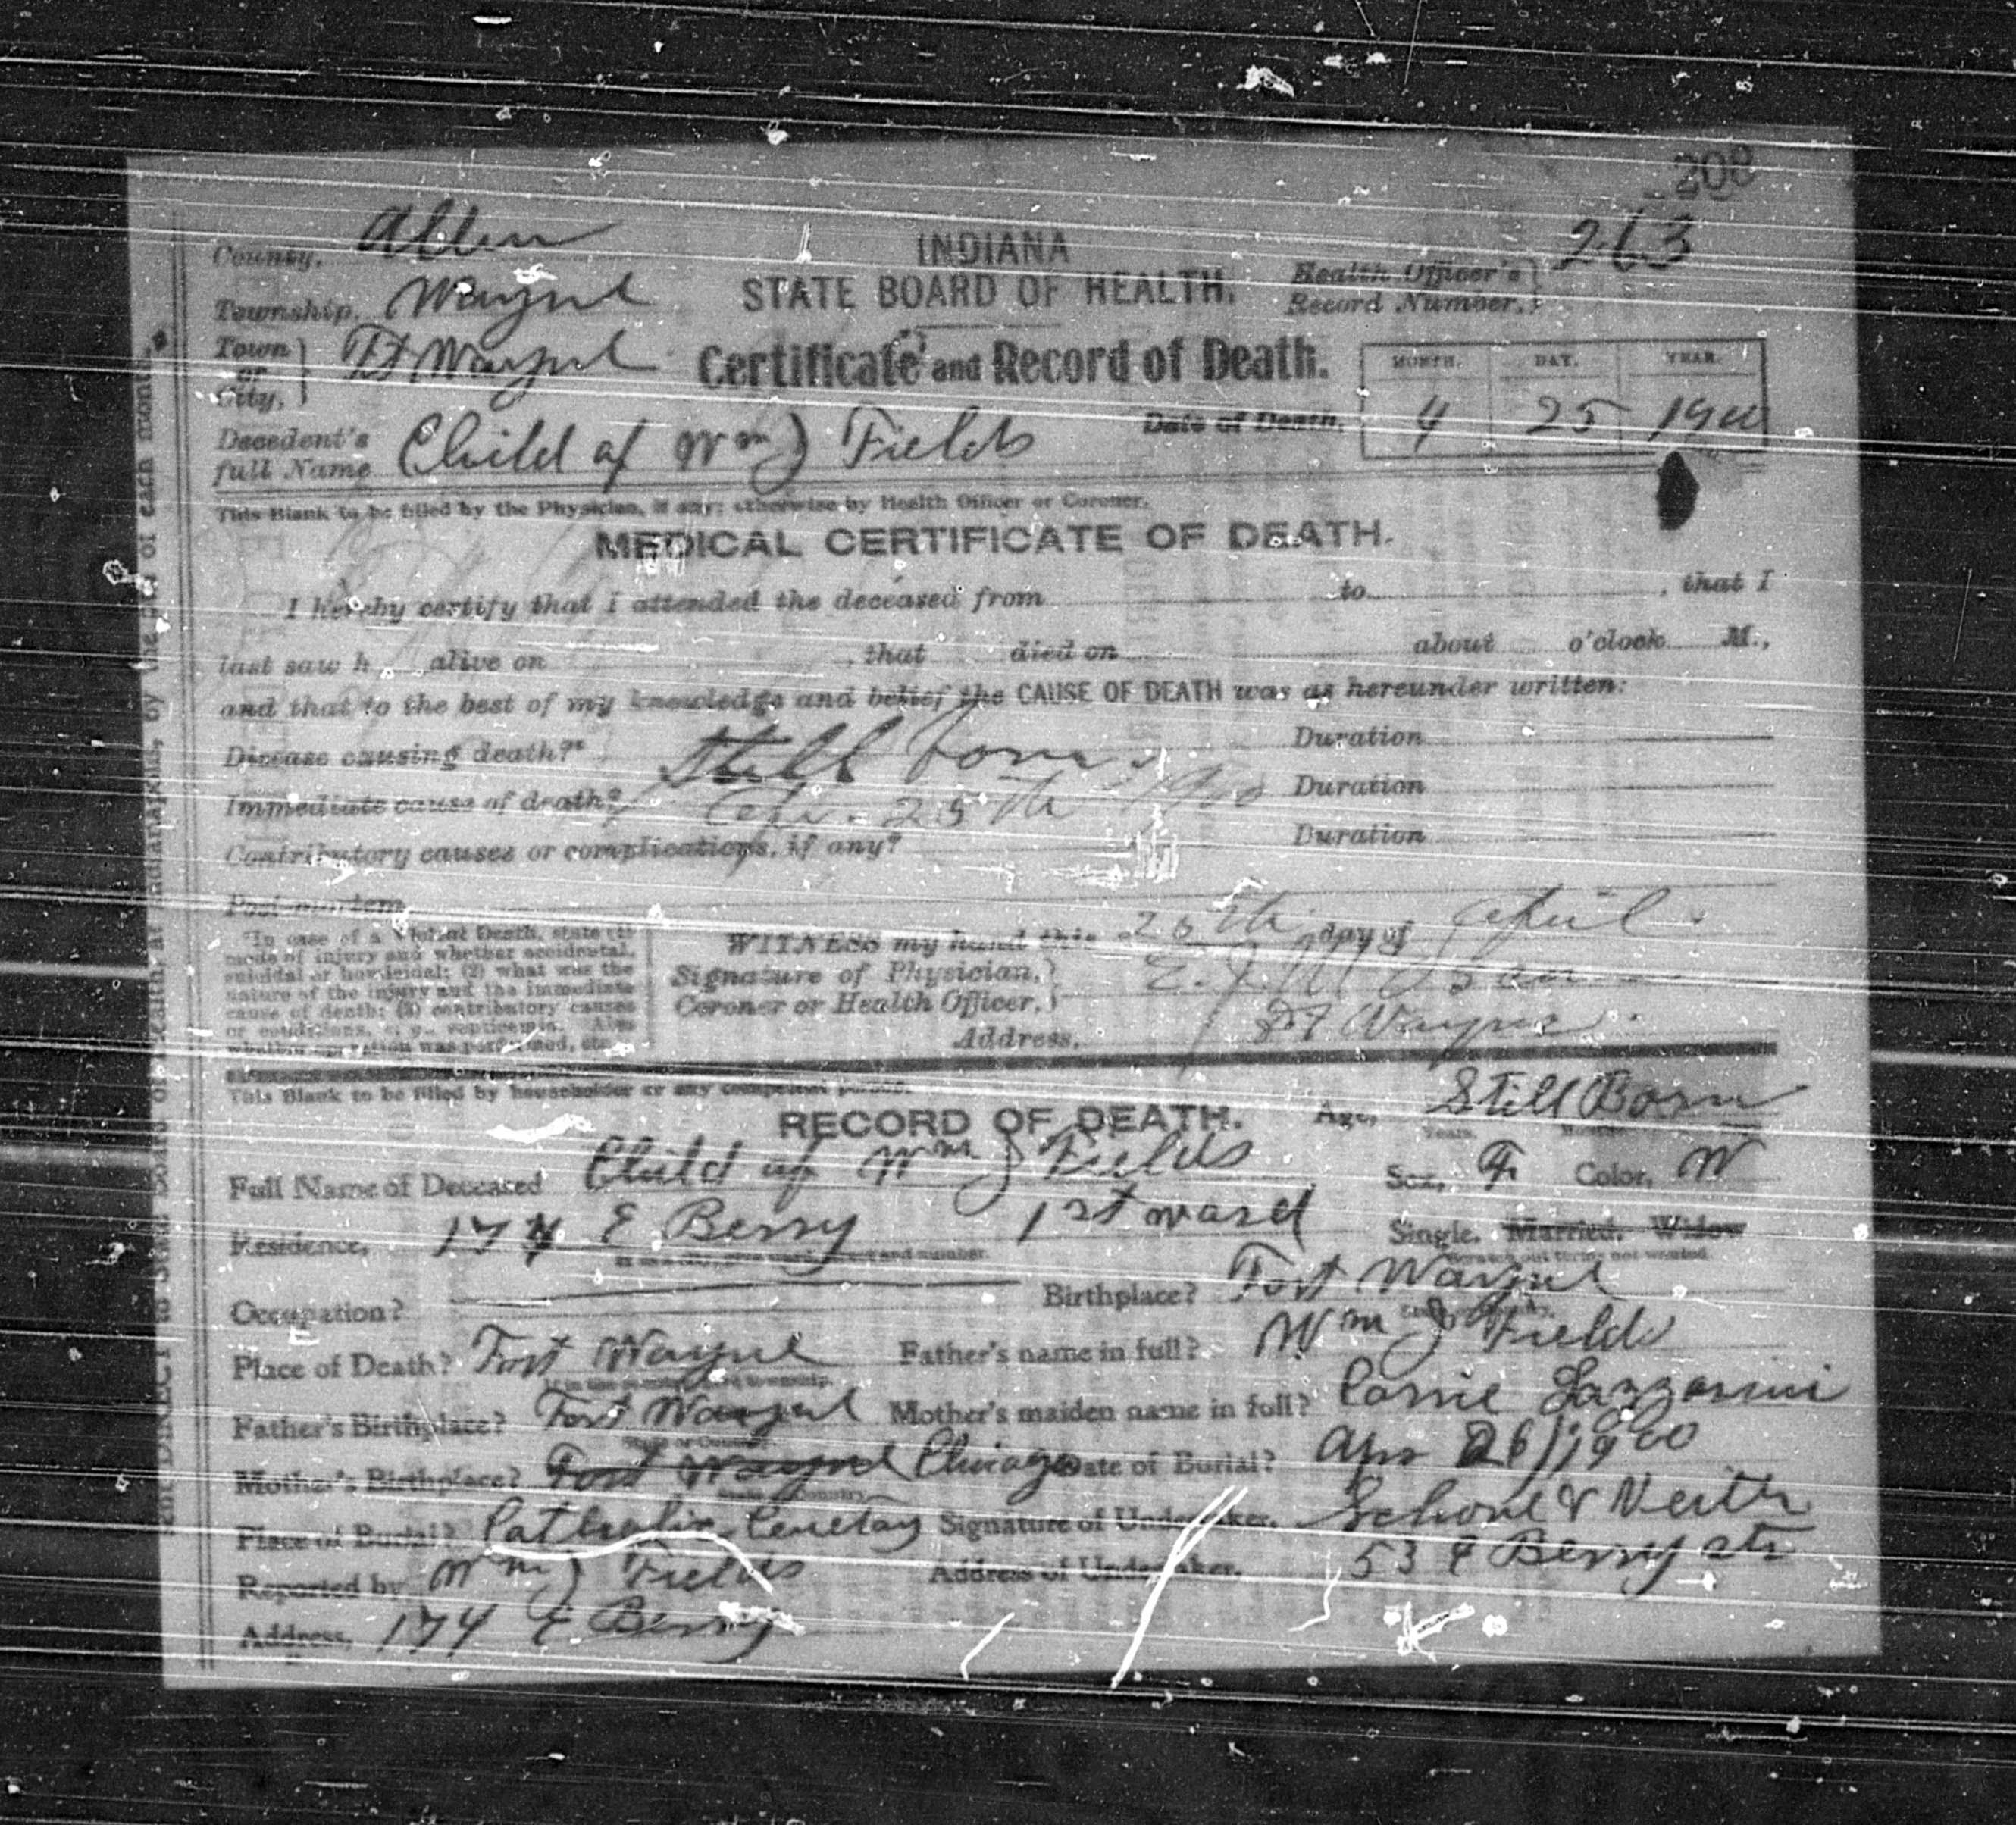 208
County, Allen
INDIANA
STATE BOARD OF HEALTH.
Health Officer's Record Number, 263
Township, Wayne
Town or City, Ft Wayne
Certificate and Record of Death.
MONTH. DAY. YEAR.
Date of Death, 4 25 1900
Decedent's full Name Child of Wm J Fields
This Blank to be filled by the Physician, if any; otherwise by Health Officer or Coroner.
MEDICAL CERTIFICATE OF DEATH.
I hereby certify that I attended the deceased from to , that I
last saw h alive on , that died on about o'clock M.,
and that to the best of my knowledge and belief the CAUSE OF DEATH was as hereunder written:
Disease causing death?* Still born Duration
Immediate cause of death? Apr. 25th 1900 Duration
Contributory causes or complications, if any? Duration
Post-mortem
*In case of a Violent Death, state (1)
mode of injury and whether accidental,
suicidal or homicidal; (2) what was the
nature of the injury and the immediate
cause of death; (3) contributory causes
or conditions, e. g., septicemia. Also
whether operation was performed, etc.
WITNESS my hand this 26th day of April
Signature of Physician,
Coroner or Health Officer,
Address, Ft Wayne
This Blank to be filled by householder or any competent person.
RECORD OF DEATH. Age, Still Born
Years
Full Name of Deceased Child of Wm J Fields Sex, F Color, W
Residence, 174 E Berry 1st ward Single. Married. Widow
Scratch out terms not wanted
Occupation? Birthplace? Fort Wayne
Place of Death? Fort Wayne Father's name in full? Wm J Fields
Father's Birthplace? Fort Wayne Mother's maiden name in full? Carrie Lazzarini
Mother's Birthplace? Fort Wayne Chicago Date of Burial? Apr 26 1900
State or Country
Place of Burial? Catholic Cemetary Signature of Undertaker, Schone & Veith
Reported by Wm J Fields Address of Undertaker, 53 E Berry str
Address, 174 E Berry